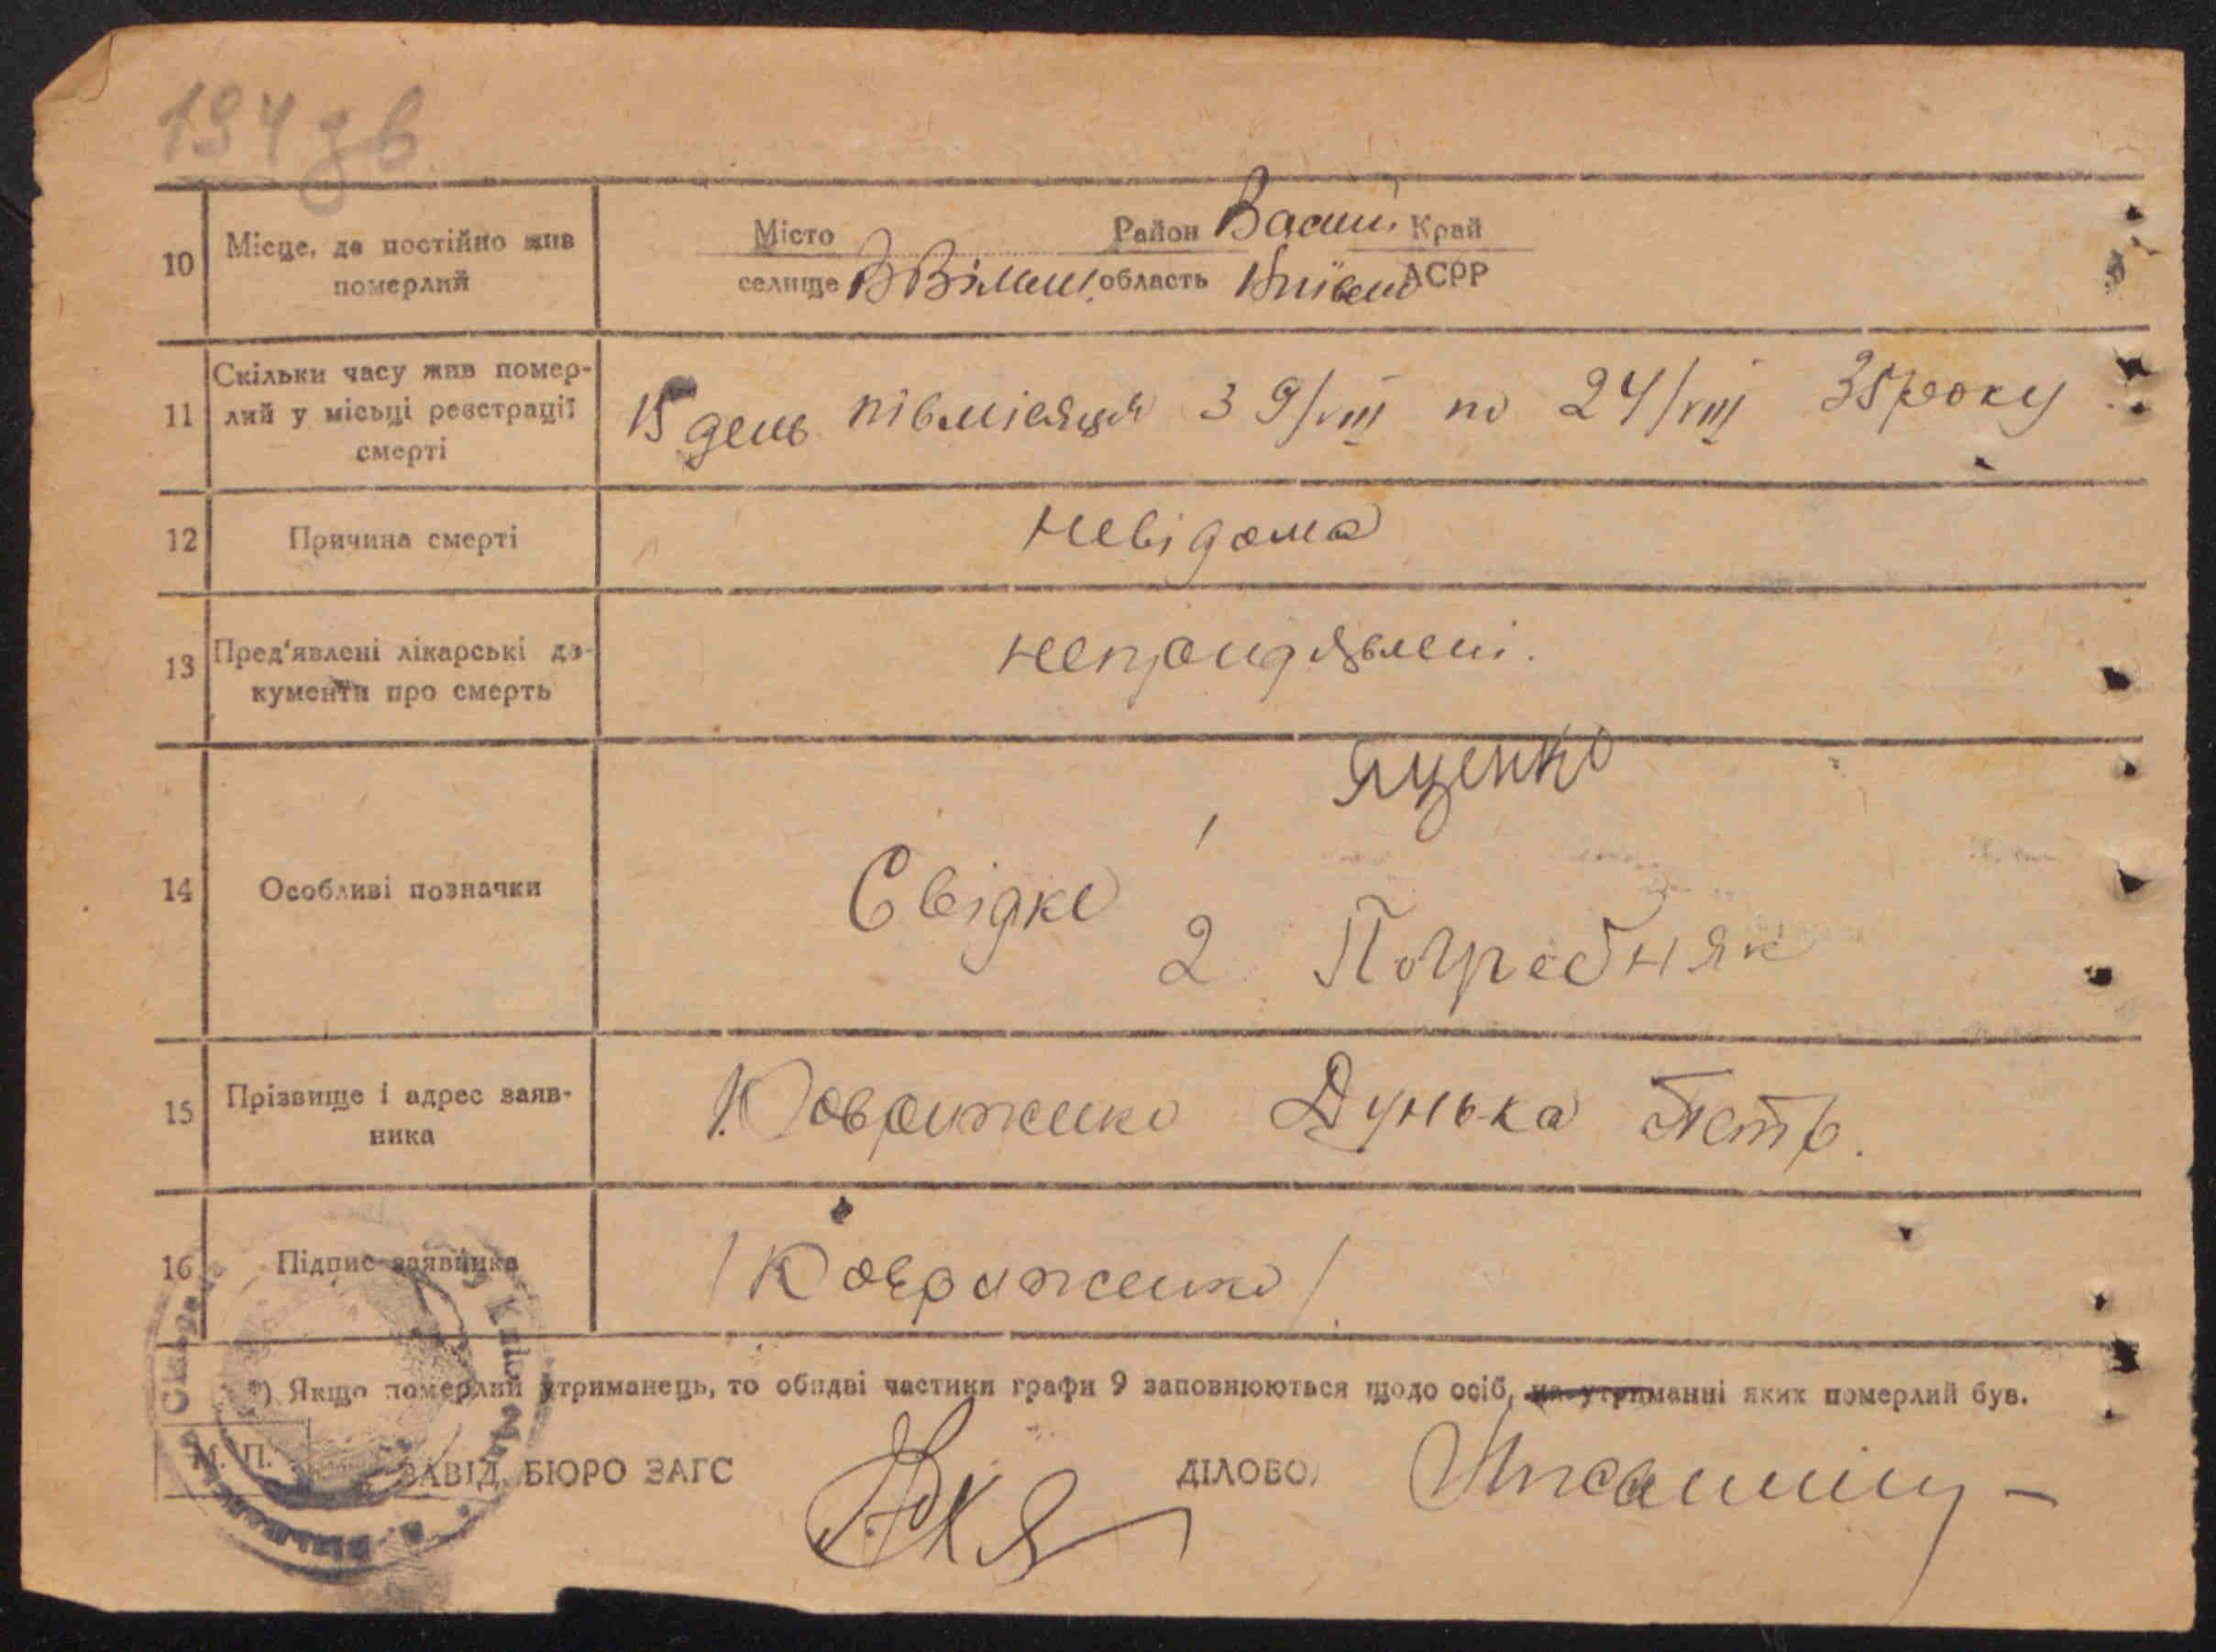 194 зв
10 Місце, де постійно жив померлий
Місто Район Васил. Край
селище В Вільш. область Київсько АСРР
11 Скільки часу жив помер-
лий у місьці реєстрації
смерті
15 день півмісяця з 9/VIII по 24/VIII 35 року
12 Причина смерті
невідома
13 Пред'явлені лікарські до-
кументи про смерть
14 Особливі позначки
Яценко
Свідке 1
2 Погребняк
15 Прізвище і адрес заяв-
ника
Ковриженко Дунька Петр.
16 Підпис заявника
/Ковриженко/.
*) Якщо померлий утриманець, то обидві частини графи 9 заповнюються щодо осіб, на утриманні яких померлий був.
М. П.
ЗАВІД. БЮРО ЗАГС ДІЛОВОД